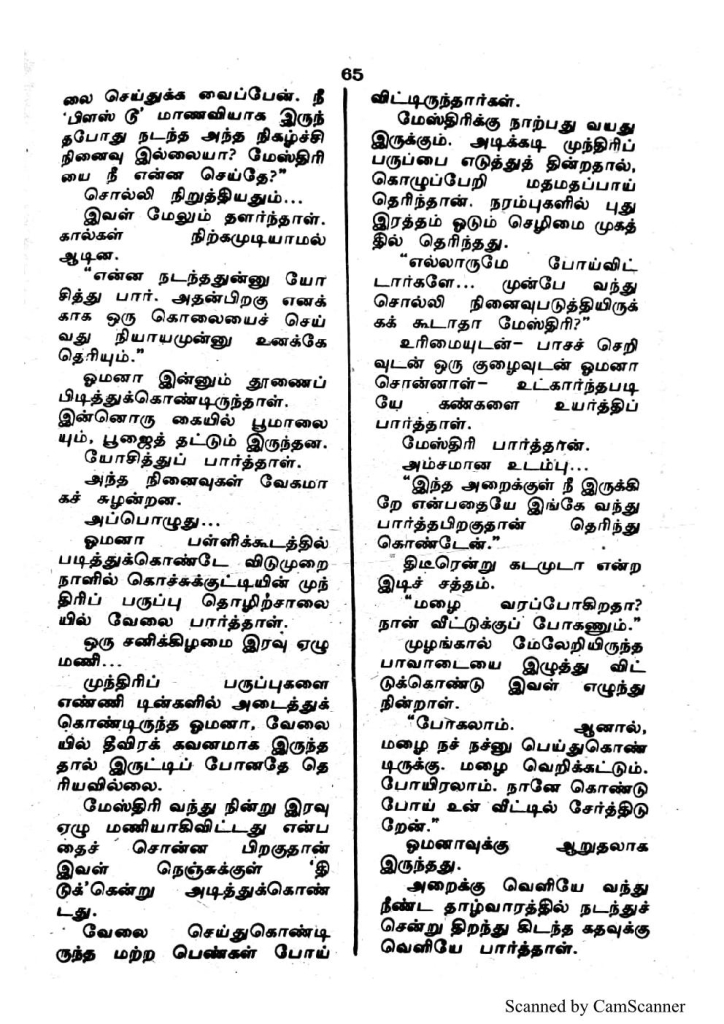 65
லை செய்துக்க வைப்பேன். நீ
'பிளஸ் டூ' மாணவியாக இருந்
தபோது நடந்த அந்த நிகழ்ச்சி
நினைவு இல்லையா? மேஸ்திரி
யை நீ என்ன செய்தே?"
சொல்லி நிறுத்தியதும்...
இவள் மேலும் தளர்ந்தாள்.
கால்கள் நிற்கமுடியாமல்
ஆடின.
"என்ன நடந்ததுன்னு யோ
சித்து பார். அதன்பிறகு எனக்
காக ஒரு கொலையைச் செய்
வது நியாயமுன்னு உனக்கே
தெரியும்."
ஓமனா இன்னும் தூணைப்
பிடித்துக்கொண்டிருந்தாள்.
இன்னொரு கையில் பூமாலை
யும், பூஜைத் தட்டும் இருந்தன.
யோசித்துப் பார்த்தாள்.
அந்த நினைவுகள் வேகமா
கச் சுழன்றன.
அப்பொழுது...
ஓமனா பள்ளிக்கூடத்தில்
படித்துக்கொண்டே விடுமுறை
நாளில் கொச்சுக்குட்டியின் முந்
திரிப் பருப்பு தொழிற்சாலை
யில் வேலை பார்த்தாள்.
ஒரு சனிக்கிழமை இரவு ஏழு
மணி...
முந்திரிப் பருப்புகளை
எண்ணி டின்களில் அடைத்துக்
கொண்டிருந்த ஓமனா, வேலை
யில் தீவிரக் கவனமாக இருந்த
தால் இருட்டிப் போனதே தெ
ரியவில்லை.
மேஸ்திரி வந்து நின்று இரவு
ஏழு மணியாகிவிட்டது என்ப
தைச் சொன்ன பிறகுதான்
இவள் நெஞ்சுக்குள் 'தி
டுக்'கென்று அடித்துக்கொண்
டது.
வேலை செய்துகொண்டி
ருந்த மற்ற பெண்கள் போய்
விட்டிருந்தார்கள்.
மேஸ்திரிக்கு நாற்பது வயது
இருக்கும். அடிக்கடி முந்திரிப்
பருப்பை எடுத்துத் தின்றதால்,
கொழுப்பேறி மதமதப்பாய்
தெரிந்தான். நரம்புகளில் புது
இரத்தம் ஓடும் செழிமை முகத்
தில் தெரிந்தது.
"எல்லாருமே போய்விட்
டார்களே... முன்பே வந்து
சொல்லி நினைவுபடுத்தியிருக்
கக் கூடாதா மேஸ்திரி?"
உரிமையுடன்– பாசச் செறி
வுடன் ஒரு குழைவுடன் ஓமனா
சொன்னாள்– உட்கார்ந்தபடி
யே கண்களை உயர்த்திப்
பார்த்தாள்.
மேஸ்திரி பார்த்தான்.
அம்சமான உடம்பு...
"இந்த அறைக்குள் நீ இருக்கி
றே என்பதையே இங்கே வந்து
பார்த்தபிறகுதான் தெரிந்து
கொண்டேன்."
திடீரென்று கடமுடா என்ற
இடிச் சத்தம்.
"மழை வரப்போகிறதா?
நான் வீட்டுக்குப் போகணும்."
முழங்கால் மேலேறியிருந்த
பாவாடையை இழுத்து விட்
டுக்கொண்டு இவள் எழுந்து
நின்றாள்.
"போகலாம். ஆனால்,
மழை நச் நச்னு பெய்துகொண்
டிருக்கு. மழை வெறிக்கட்டும்.
போயிரலாம். நானே கொண்டு
போய் உன் வீட்டில் சேர்த்திடு
றேன்."
ஓமனாவுக்கு ஆறுதலாக
இருந்தது.
அறைக்கு வெளியே வந்து
நீண்ட தாழ்வாரத்தில் நடந்துச்
சென்று திறந்து கிடந்த கதவுக்கு
வெளியே பார்த்தாள்.
Scanned by CamScanner